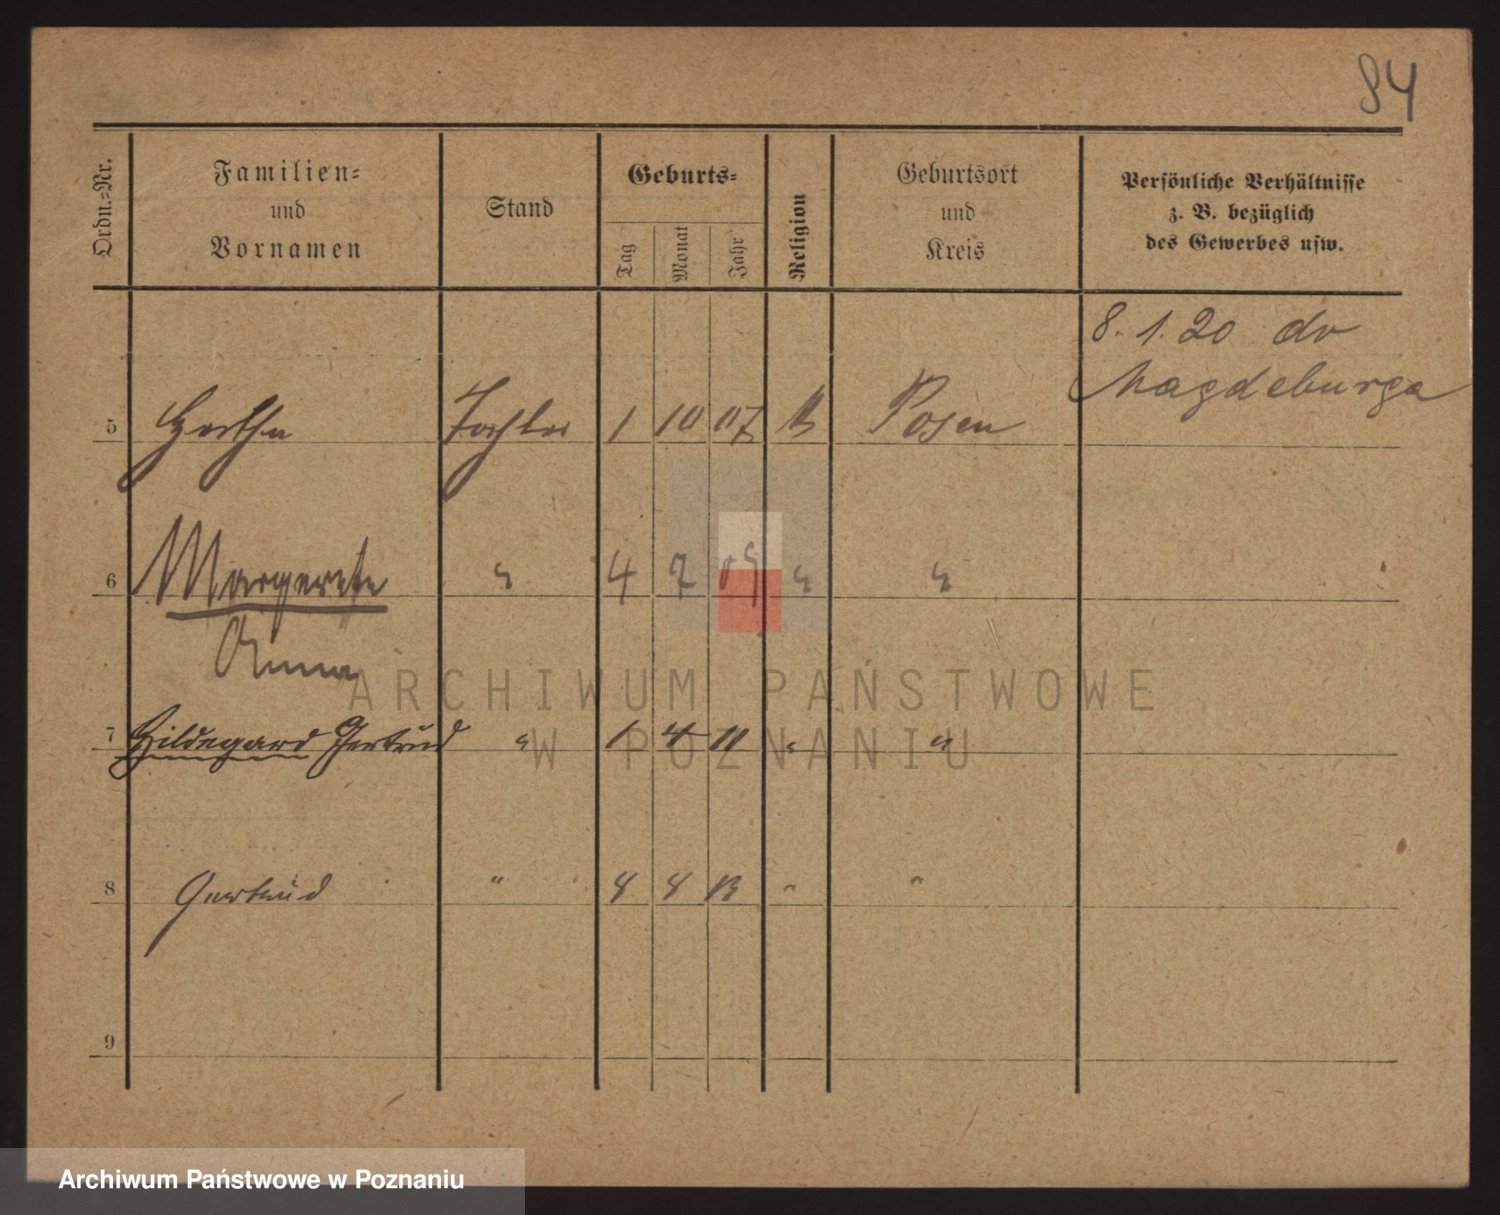 84
Ordn.=Nr.
Familien=
und
Vornamen
Stand
Geburts=
Tag
Monat
Jahr
Religion
Geburtsort
und
Kreis
Persönliche Verhältnisse
z. B. bezüglich
des Gewerbes usw.
8. 1. 20 do
Magdeburga
5 Hertha Tochter 1 10 07 Posen
6 Margarete " 4 7 09 " "
Anna
7 Hildegard Gertrud " 1 4 11 " "
8 Gertrud " 8 8 13 " "
9
ARCHIWUM PAŃSTWOWE
W POZNANIU
Archiwum Państwowe w Poznaniu